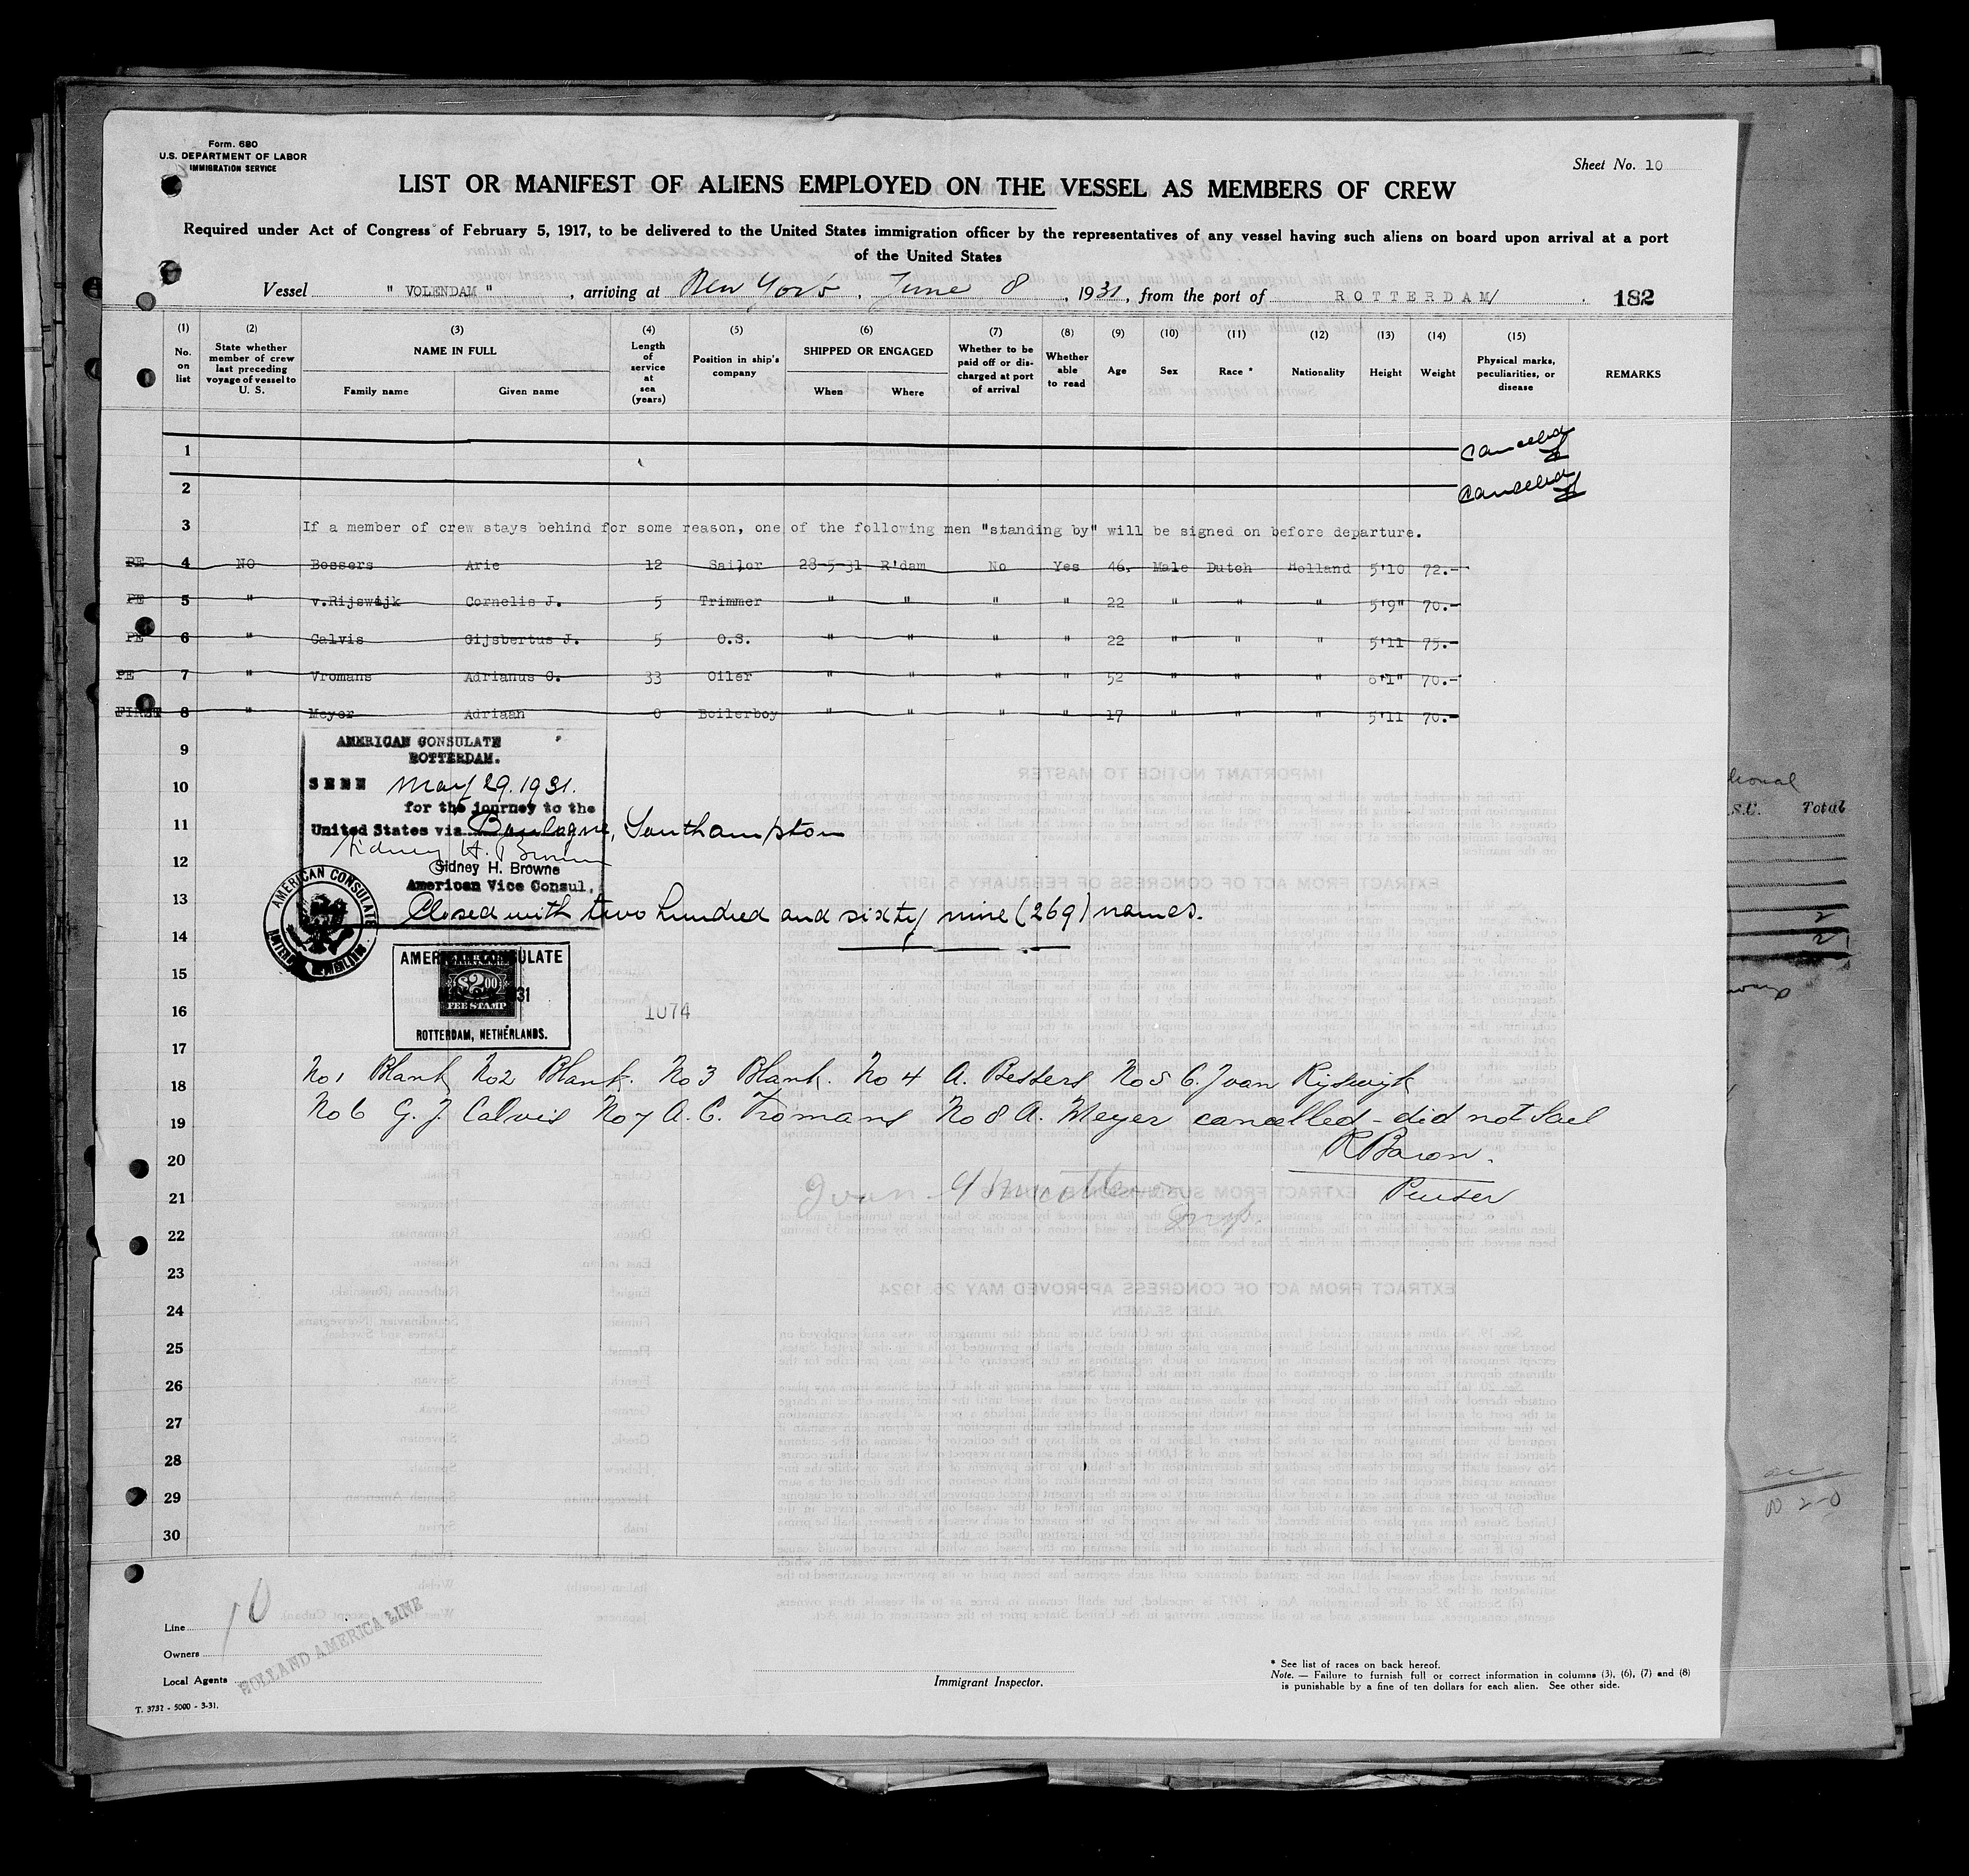 Form. 680
U.S. DEPARTMENT OF LABOR
IMMIGRATION SERVICE
Sheet No. 10
LIST OR MANIFEST OF ALIENS EMPLOYED ON THE VESSEL AS MEMBERS OF CREW
Required under Act of Congress of February 5, 1917, to be delivered to the United States immigration officer by the representatives of any vessel having such aliens on board upon arrival at a port
of the United States
Vessel " VOLENDAM " , arriving at New York , June 8 , 1931, from the port of ROTTERDAM/ . 182
(1) No. on list
(2) State whether member of crew last preceding voyage of vessel to U. S.
(3) NAME IN FULL Family name Given name
(4) Length of service at sea (years)
(5) Position in ship's company
(6) SHIPPED OR ENGAGED When Where
(7) Whether to be paid off or discharged at port of arrival
(8) Whether able to read
(9) Age
(10) Sex
(11) Race *
(12) Nationality
(13) Height
(14) Weight
(15) Physical marks, peculiarities, or disease
REMARKS
1 Cancelled
2 Cancelled
3 If a member of crew stays behind for some reason, one of the following men "standing by" will be signed on before departure.
PE 4 NO Bossers Arie 12 Sailor 28-5-31 R'dam No Yes 46. Male Dutch Holland 5'10 72.-
PE 5 " v.Rijswijk Cornelis J. 5 Trimmer " " " " 22 " " " 5'9" 70.-
PE 6 " Calvis Gijsbertus J. 5 O.S. " " " " 22 " " " 5'11 75.-
PE 7 " Vromans Adrianus C. 33 Oiler " " " " 52 " " " 6'1" 70.-
FIRST 8 " Meyer Adriaan 0 Boilerboy " " " " 17 " " " 5'11 70.-
9
AMERICAN CONSULATE
ROTTERDAM.
10 SEEN May 29. 1931.
for the journey to the
11 United States via Boulogne, Southampton
12 Sidney H. Browne
Sidney H. Browne
American Vice Consul,
AMERICAN CONSULATE
13 Closed with two hundred and sixty nine (269) names.
14
AMERICAN CONSULATE
15 $2.00
FEE STAMP
16 1074
ROTTERDAM, NETHERLANDS.
17
18 No 1 Blank No 2 Blank. No 3 Blank. No 4 A. Bessers No 5 C. J van Rijswijk
19 No 6 G. J. Calvis No 7 A. C. Vromans No 8 A. Meyer cancelled - did not Sail
20 R Baron.
21 Purser
22
23
24
25
26
27
28
29
30
10
Line
Owners
Local Agents
HOLLAND AMERICA LINE
Immigrant Inspector.
* See list of races on back hereof.
Note. — Failure to furnish full or correct information in columns (3), (6), (7) and (8)
is punishable by a fine of ten dollars for each alien. See other side.
T. 3737 - 5000 - 3-31.
Total